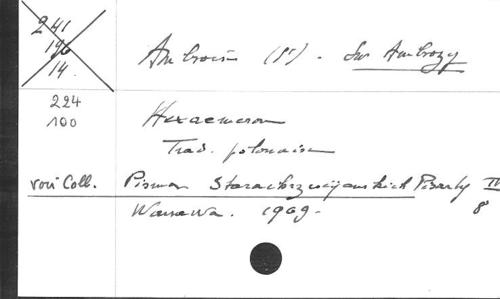 241
196
14.
Ambroise (St) . Św Ambroży
224
100
Hexaemeron
Trad. polonaise
voir Coll. Pisma Starochrzescijanskich Pisarzy IV
Warszawa. 1969. 8°